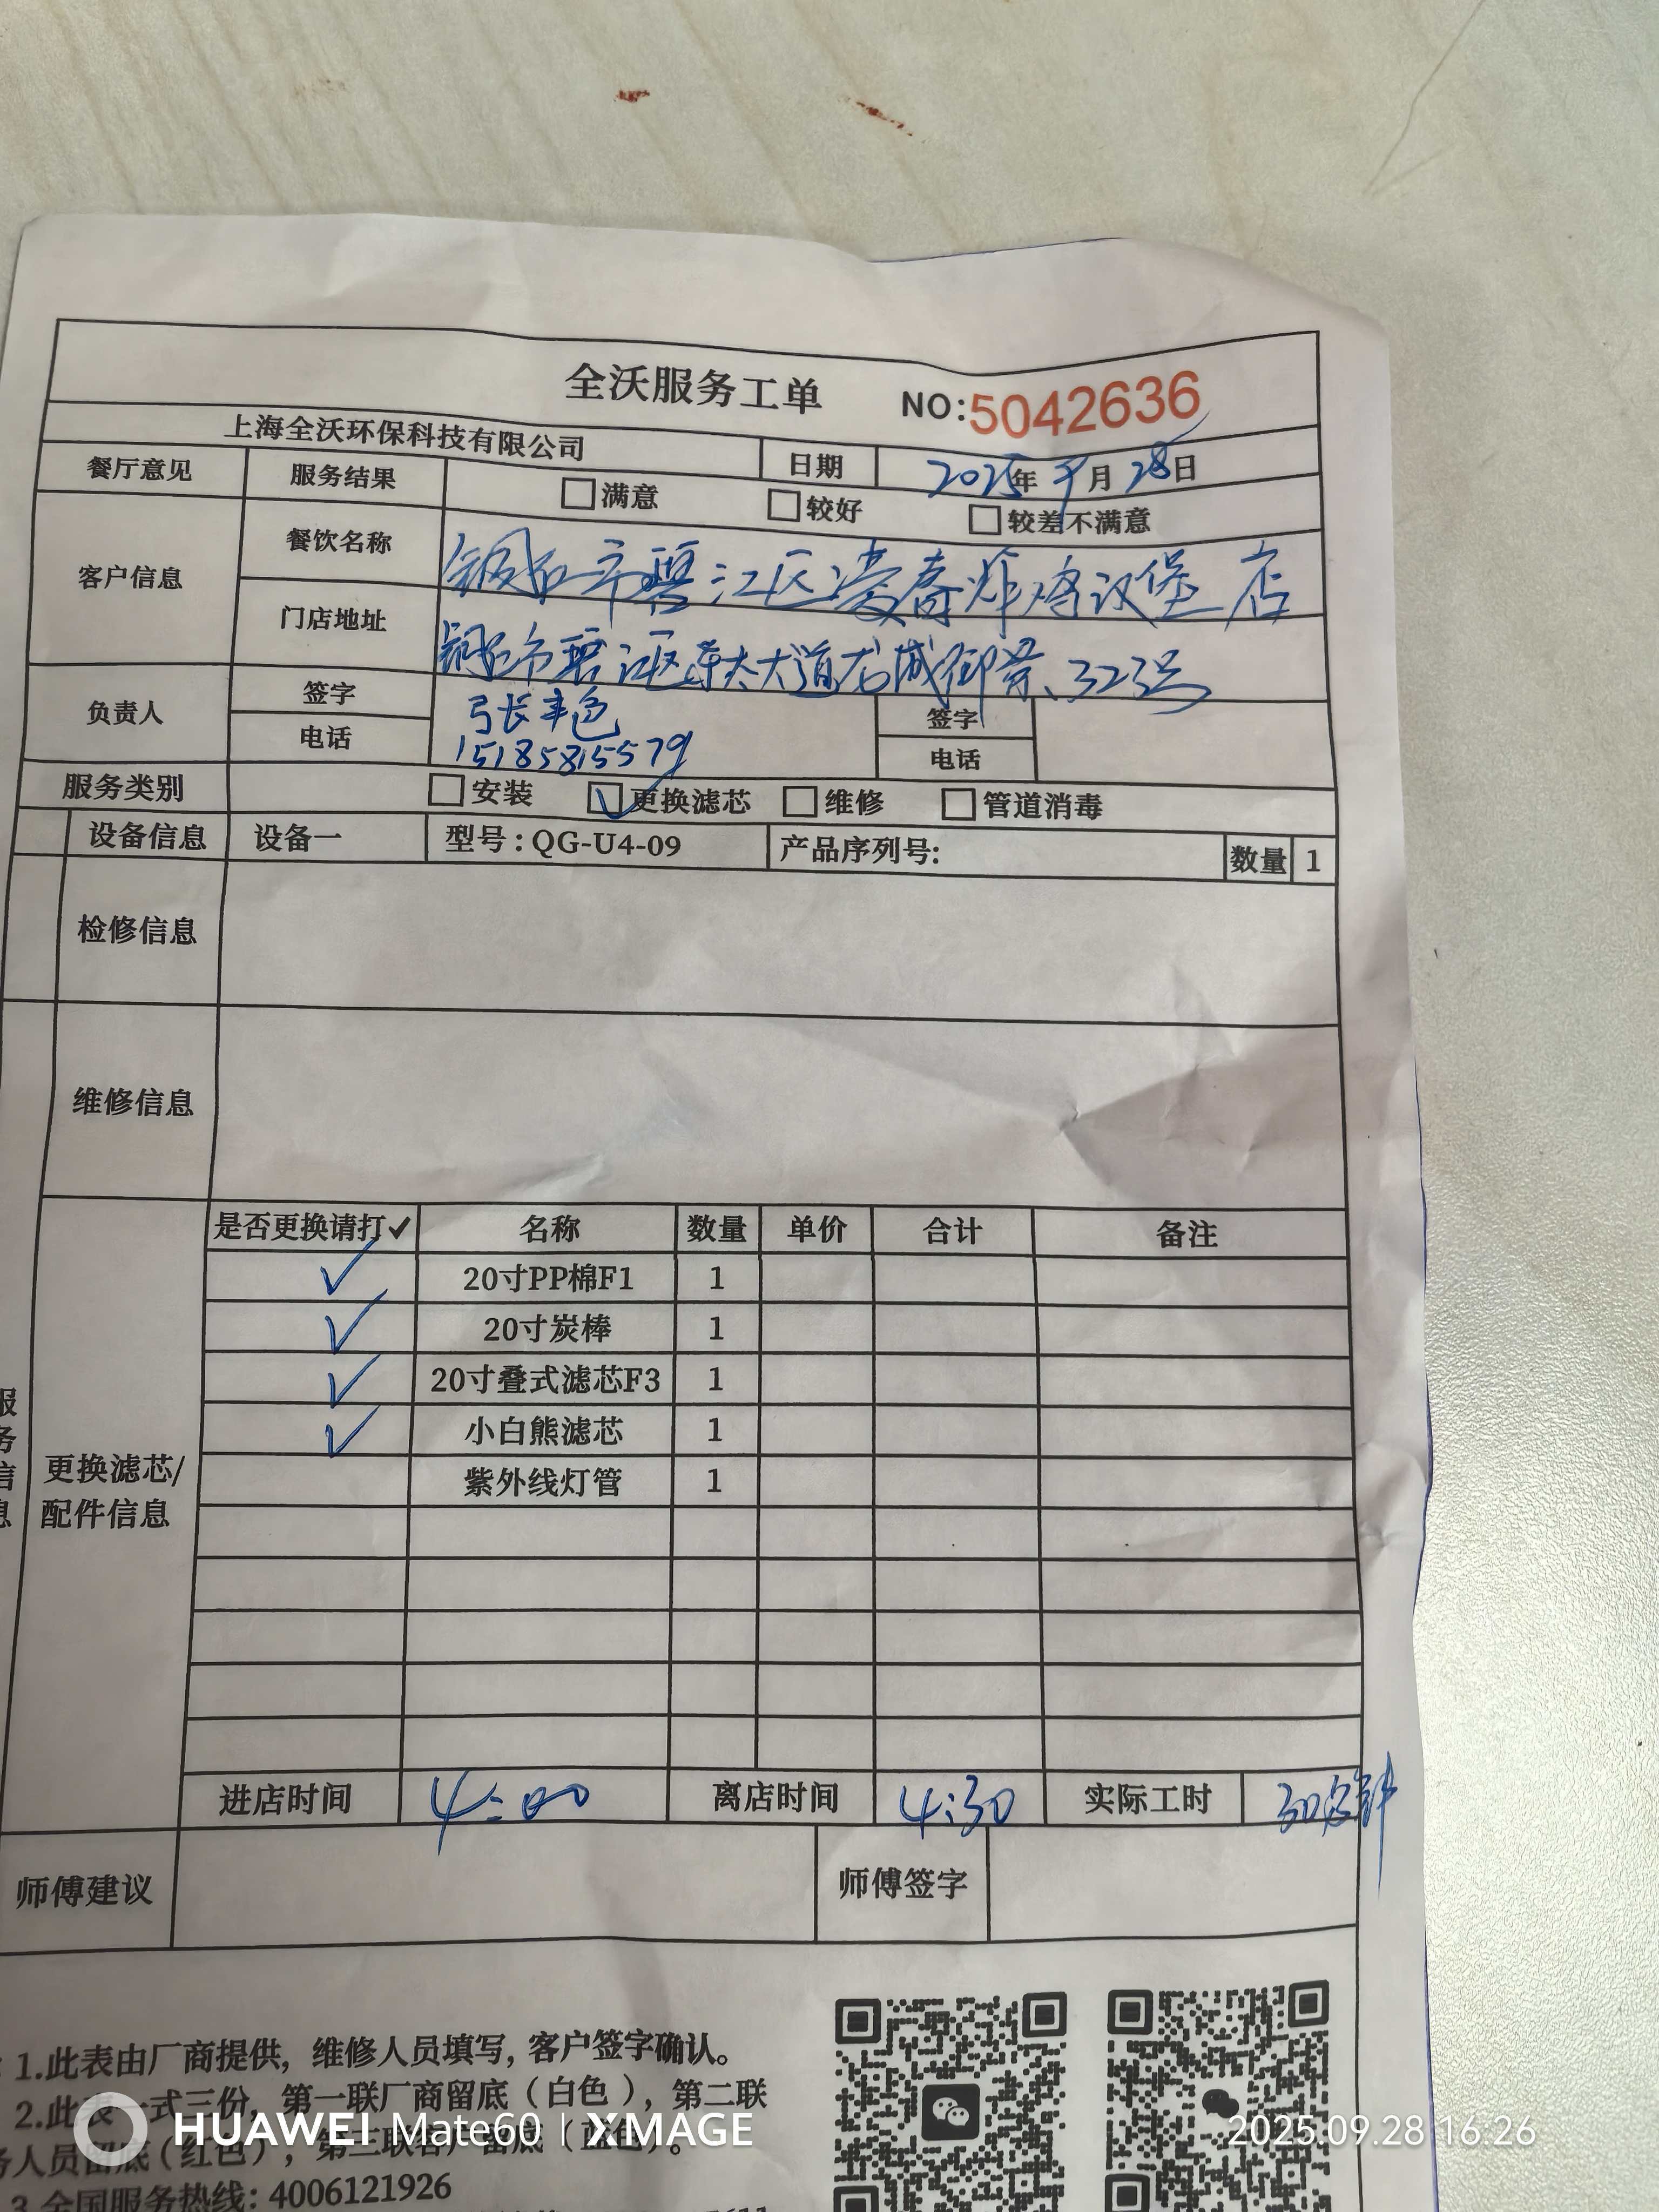 全沃服务工单 NO:5042636
上海全沃环保科技有限公司 日期 2025年9月28日
餐厅意见 服务结果 □满意 □较好 □较差不满意
客户信息 餐饮名称 铜仁市碧江区 春炸鸡汉堡店
门店地址 铜仁市碧江区 大道龙城御景 323号
负责人 签字 张 签字
电话 15185815579 电话
服务类别 □安装 ☑更换滤芯 □维修 □管道消毒
设备信息 设备一 型号:QG-U4-09 产品序列号: 数量 1
检修信息
维修信息
服务信息
更换滤芯/
配件信息
是否更换请打✓ 名称 数量 单价 合计 备注
✓ 20寸PP棉F1 1
✓ 20寸炭棒 1
✓ 20寸叠式滤芯F3 1
✓ 小白熊滤芯 1
紫外线灯管 1
进店时间 4:00 离店时间 4:30 实际工时 30分钟
师傅建议 师傅签字
1.此表由厂商提供,维修人员填写,客户签字确认。
2.此表一式三份,第一联厂商留底(白色),第二联
务人员留底(红色),第三联客户留底(蓝色)。
3.全国服务热线:4006121926
HUAWEI Mate60 | XMAGE
2025.09.28 16:26